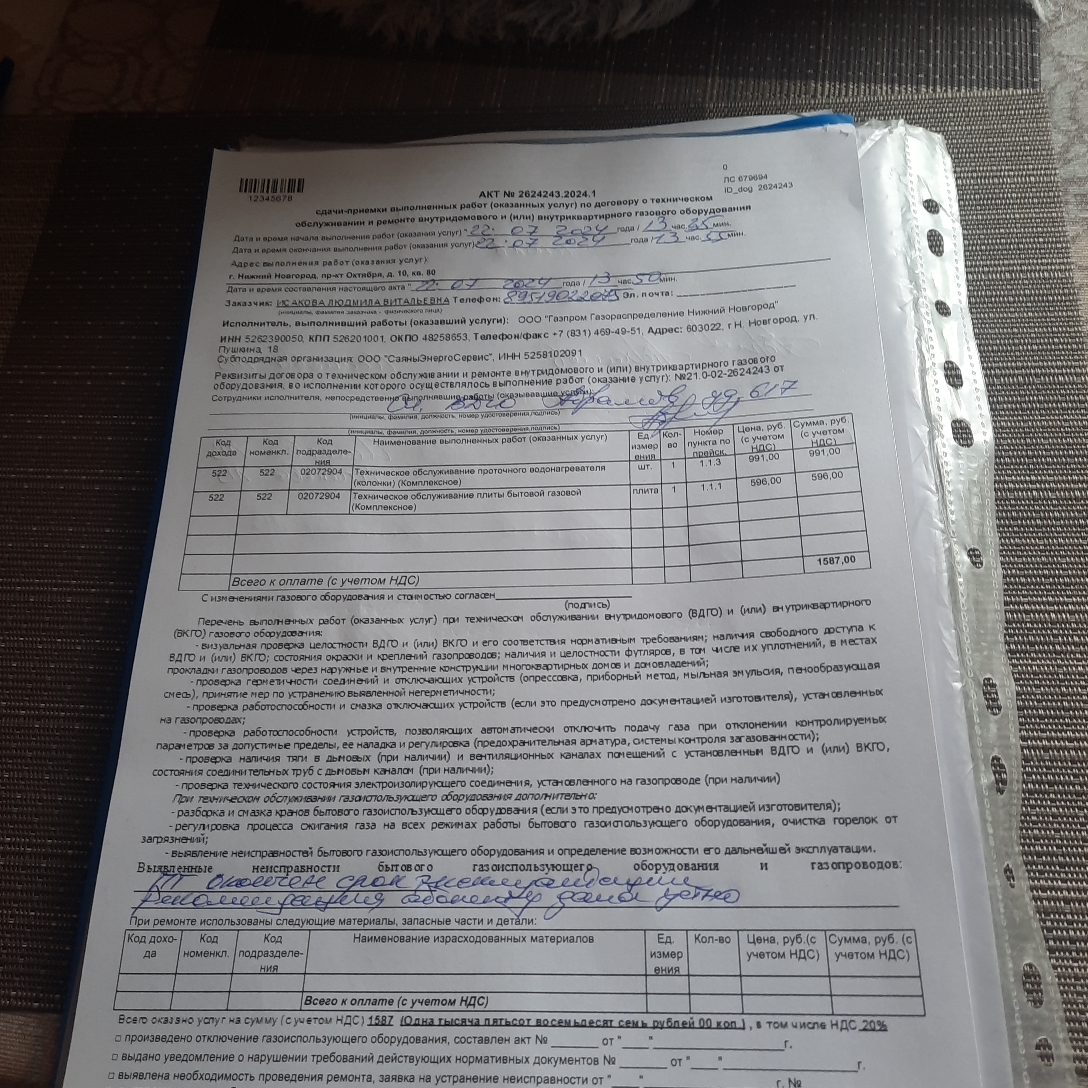 12345678
0
ЛС 679694
ID_dog 2624243
АКТ № 2624243.2024.1
сдачи-приемки выполненных работ (оказанных услуг) по договору о техническом
обслуживании и ремонте внутридомового и (или) внутриквартирного газового оборудования
Дата и время начала выполнения работ (оказания услуг) "22. 07 2024 года / 13 час 35 мин.
Дата и время окончания выполнения работ (оказания услуг) 22. 07 2024 года / 13 час 55 мин.
Адрес выполнения работ (оказания услуг):
г. Нижний Новгород, пр-кт Октября, д. 10, кв. 80
Дата и время составления настоящего акта "22. 07 2024 года / 13 час 50 мин.
Заказчик: ИСАКОВА ЛЮДМИЛА ВИТАЛЬЕВНА Телефон: 89519022075 Эл. почта:
(инициалы, фамилия заказчика - физического лица)
Исполнитель, выполнивший работы (оказавший услуги): ООО "Газпром Газораспределение Нижний Новгород"
ИНН 5262390050, КПП 526201001, ОКПО 48258653, Телефон/факс +7 (831) 469-49-51, Адрес: 603022, г Н. Новгород, ул.
Пушкина, 18
Субподрядная организация: ООО "СаяныЭнергоСервис", ИНН 5258102091
Реквизиты договора о техническом обслуживании и ремонте внутридомового и (или) внутриквартирного газового
оборудования, во исполнении которого осуществлялось выполнение работ (оказание услуг): №21.0-02-2624243 от
Сотрудники исполнителя, непосредственно выполнявшие работы (оказывавшие услуги):
(инициалы, фамилия, должность, номер удостоверения,подпись)
(инициалы, фамилия, должность, номер удостоверения,подпись)
Код дохода Код номенкл. Код подразделения Наименование выполненных работ (оказанных услуг) Ед. измерения Кол-во Номер пункта по прейск. Цена, руб. (с учетом НДС) Сумма, руб. (с учетом НДС)
522 522 02072904 Техническое обслуживание проточного водонагревателя (колонки) (Комплексное) шт. 1 1.1.3 991,00 991,00
522 522 02072904 Техническое обслуживание плиты бытовой газовой (Комплексное) плита 1 1.1.1 596,00 596,00
Всего к оплате (с учетом НДС) 1587,00
С изменениями газового оборудования и стоимостью согласен
(подпись)
Перечень выполненных работ (оказанных услуг) при техническом обслуживании внутридомового (ВДГО) и (или) внутриквартирного
(ВКГО) газового оборудования:
- визуальная проверка целостности ВДГО и (или) ВКГО и его соответствия нормативным требованиям; наличия свободного доступа к
ВДГО и (или) ВКГО; состояния окраски и креплений газопроводов; наличия и целостности футляров, в том числе их уплотнений, в местах
прокладки газопроводов через наружные и внутренние конструкции многоквартирных домов и домовладений;
- проверка герметичности соединений и отключающих устройств (опрессовка, приборный метод, мыльная эмульсия, пенообразующая
смесь), принятие мер по устранению выявленной негерметичности;
- проверка работоспособности и смазка отключающих устройств (если это предусмотрено документацией изготовителя), установленных
на газопроводах;
- проверка работоспособности устройств, позволяющих автоматически отключить подачу газа при отклонении контролируемых
параметров за допустимые пределы, ее наладка и регулировка (предохранительная арматура, системы контроля загазованности);
- проверка наличия тяги в дымовых (при наличии) и вентиляционных каналах помещений с установленным ВДГО и (или) ВКГО,
состояния соединительных труб с дымовым каналом (при наличии);
- проверка технического состояния электроизолирующего соединения, установленного на газопроводе (при наличии)
При техническом обслуживании газоиспользующего оборудования дополнительно:
- разборка и смазка кранов бытового газоиспользующего оборудования (если это предусмотрено документацией изготовителя);
- регулировка процесса сжигания газа на всех режимах работы бытового газоиспользующего оборудования, очистка горелок от
загрязнений;
- выявление неисправностей бытового газоиспользующего оборудования и определение возможности его дальнейшей эксплуатации.
Выявленные неисправности бытового газоиспользующего оборудования и газопроводов:
окончен срок эксплуатации
Рекомендация абоненту дана устно
При ремонте использованы следующие материалы, запасные части и детали:
Код дохо-да Код номенкл. Код подразделе-ния Наименование израсходованных материалов Ед. измерения Кол-во Цена, руб.(с учетом НДС) Сумма, руб. (с учетом НДС)
Всего к оплате (с учетом НДС)
Всего оказано услуг на сумму (с учетом НДС) 1587 (Одна тысяча пятьсот восемьдесят семь рублей 00 коп.) , в том числе НДС 20%
□ произведено отключение газоиспользующего оборудования, составлен акт № от " " г.
□ выдано уведомление о нарушении требований действующих нормативных документов № от " " г.
□ выявлена необходимость проведения ремонта, заявка на устранение неисправности от " г. №